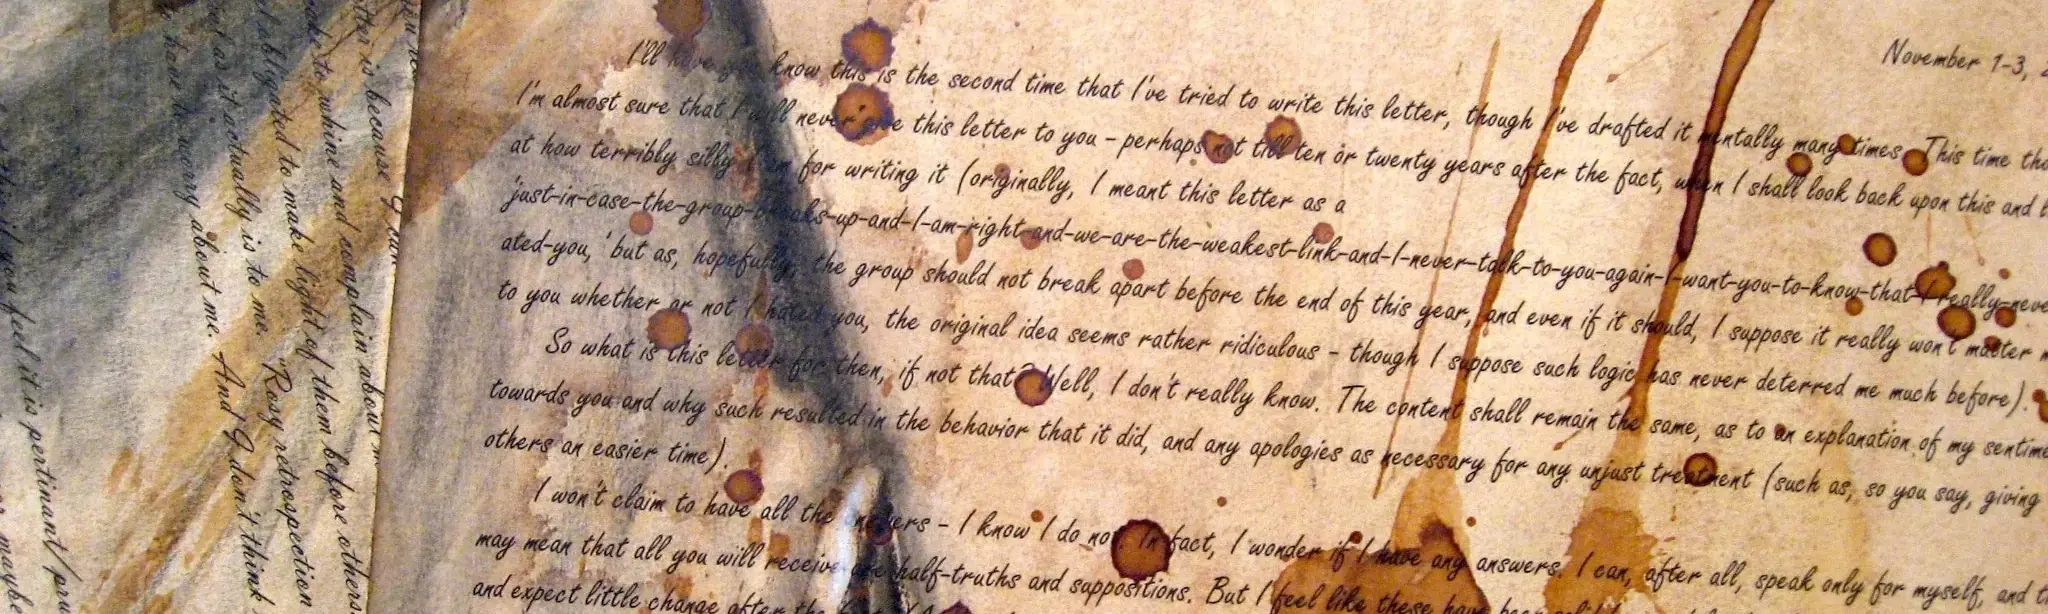 November 1-3,
I'll have you know this is the second time that I've tried to write this letter, though I've drafted it mentally many times. This time
I'm almost sure that I will never give this letter to you - perhaps not till ten or twenty years after the fact, when I shall look back upon this and
at how terribly silly I am for writing it (originally, I meant this letter as a
'just-in-case-the-group-breaks-up-and-I-am-right-and-we-are-the-weakest-link-and-I-never-talk-to-you-again-I-want-you-to-know-that-I-really-never
ated-you,' but as, hopefully, the group should not break apart before the end of this year, and even if it should, I suppose it really won't matter
to you whether or not I hated you, the original idea seems rather ridiculous - though I suppose such logic has never deterred me much before).
So what is this letter for then, if not that? Well, I don't really know. The content shall remain the same, as to an explanation of my
towards you and why such resulted in the behavior that it did, and any apologies as necessary for any unjust treatment (such as, so you say, giving
others an easier time).
I won't claim to have all the answers - I know I do not. In fact, I wonder if I have any answers. I can, after all, speak only for myself, and
may mean that all you will receive are half-truths and suppositions. But I feel like these have been
and expect little change after the
is because I
to whine and complain about
obligated to make light of them before others.
as it actually is to me. "Rosy retrospection
have to worry about me. And I don't think
you feel it is pertinant/
maybe